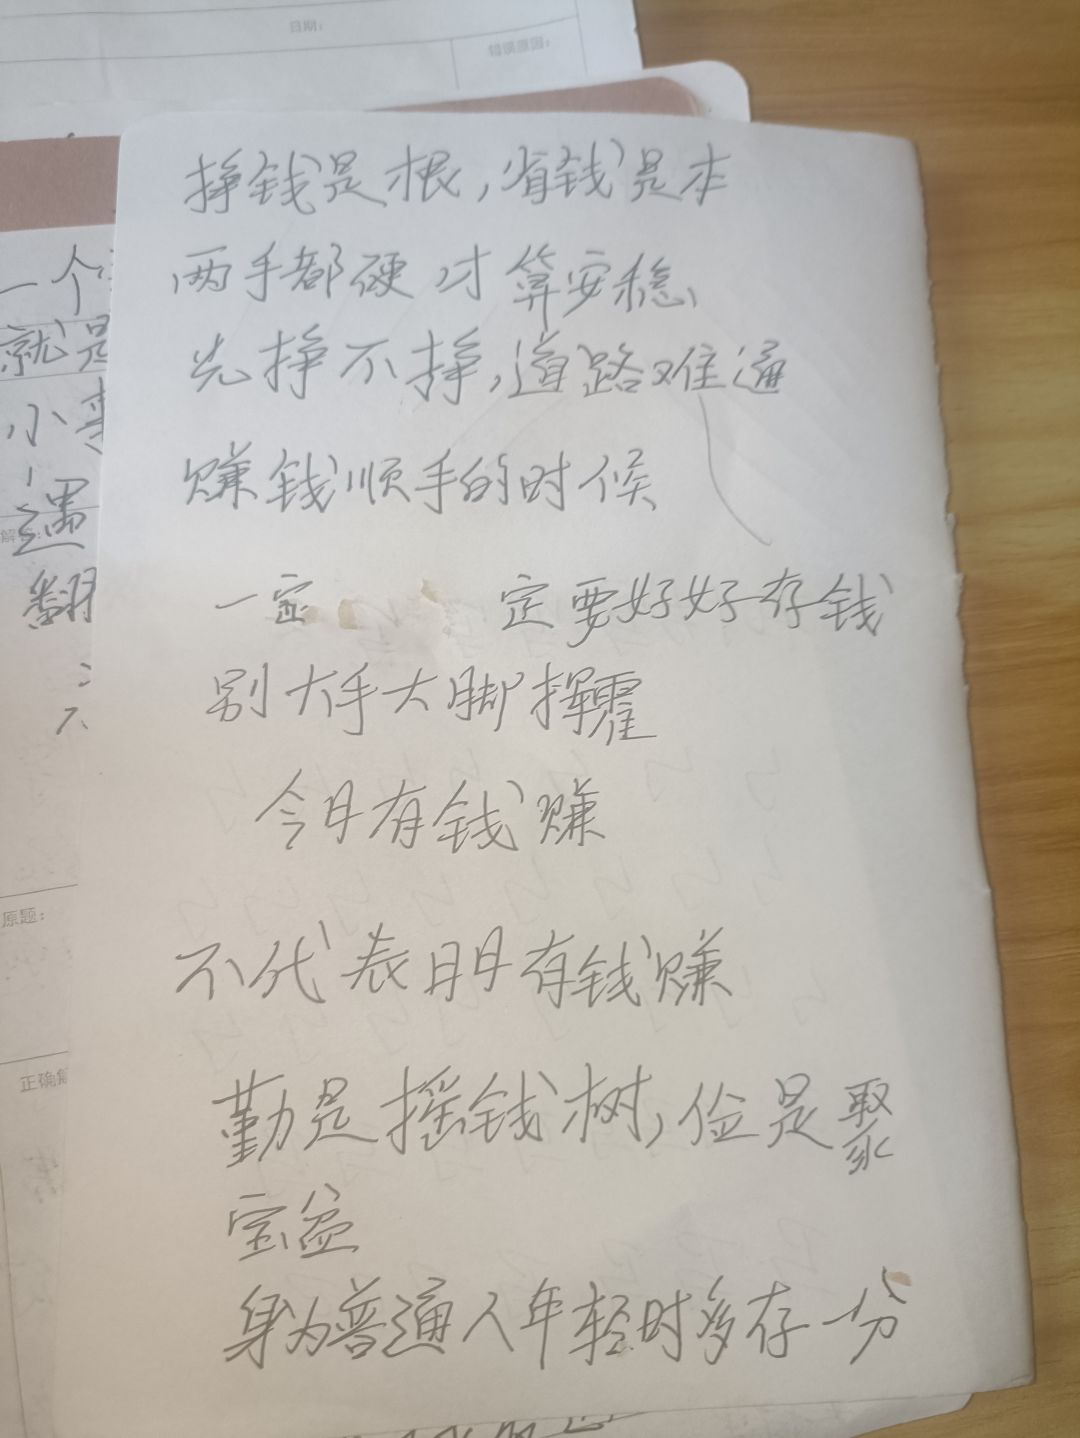 日期：
错误原因：
挣钱是根，省钱是本
两手都硬才算安稳
光挣不挣，道路难通
赚钱顺手的时候
一定 定要好好存钱
别大手大脚挥霍
今月有钱赚
不代表明月有钱赚
勤是摇钱树，俭是聚
宝盆
身为普通人年轻时多存一分
一个
就是
小
遇
解答：
翻
原题：
正确解